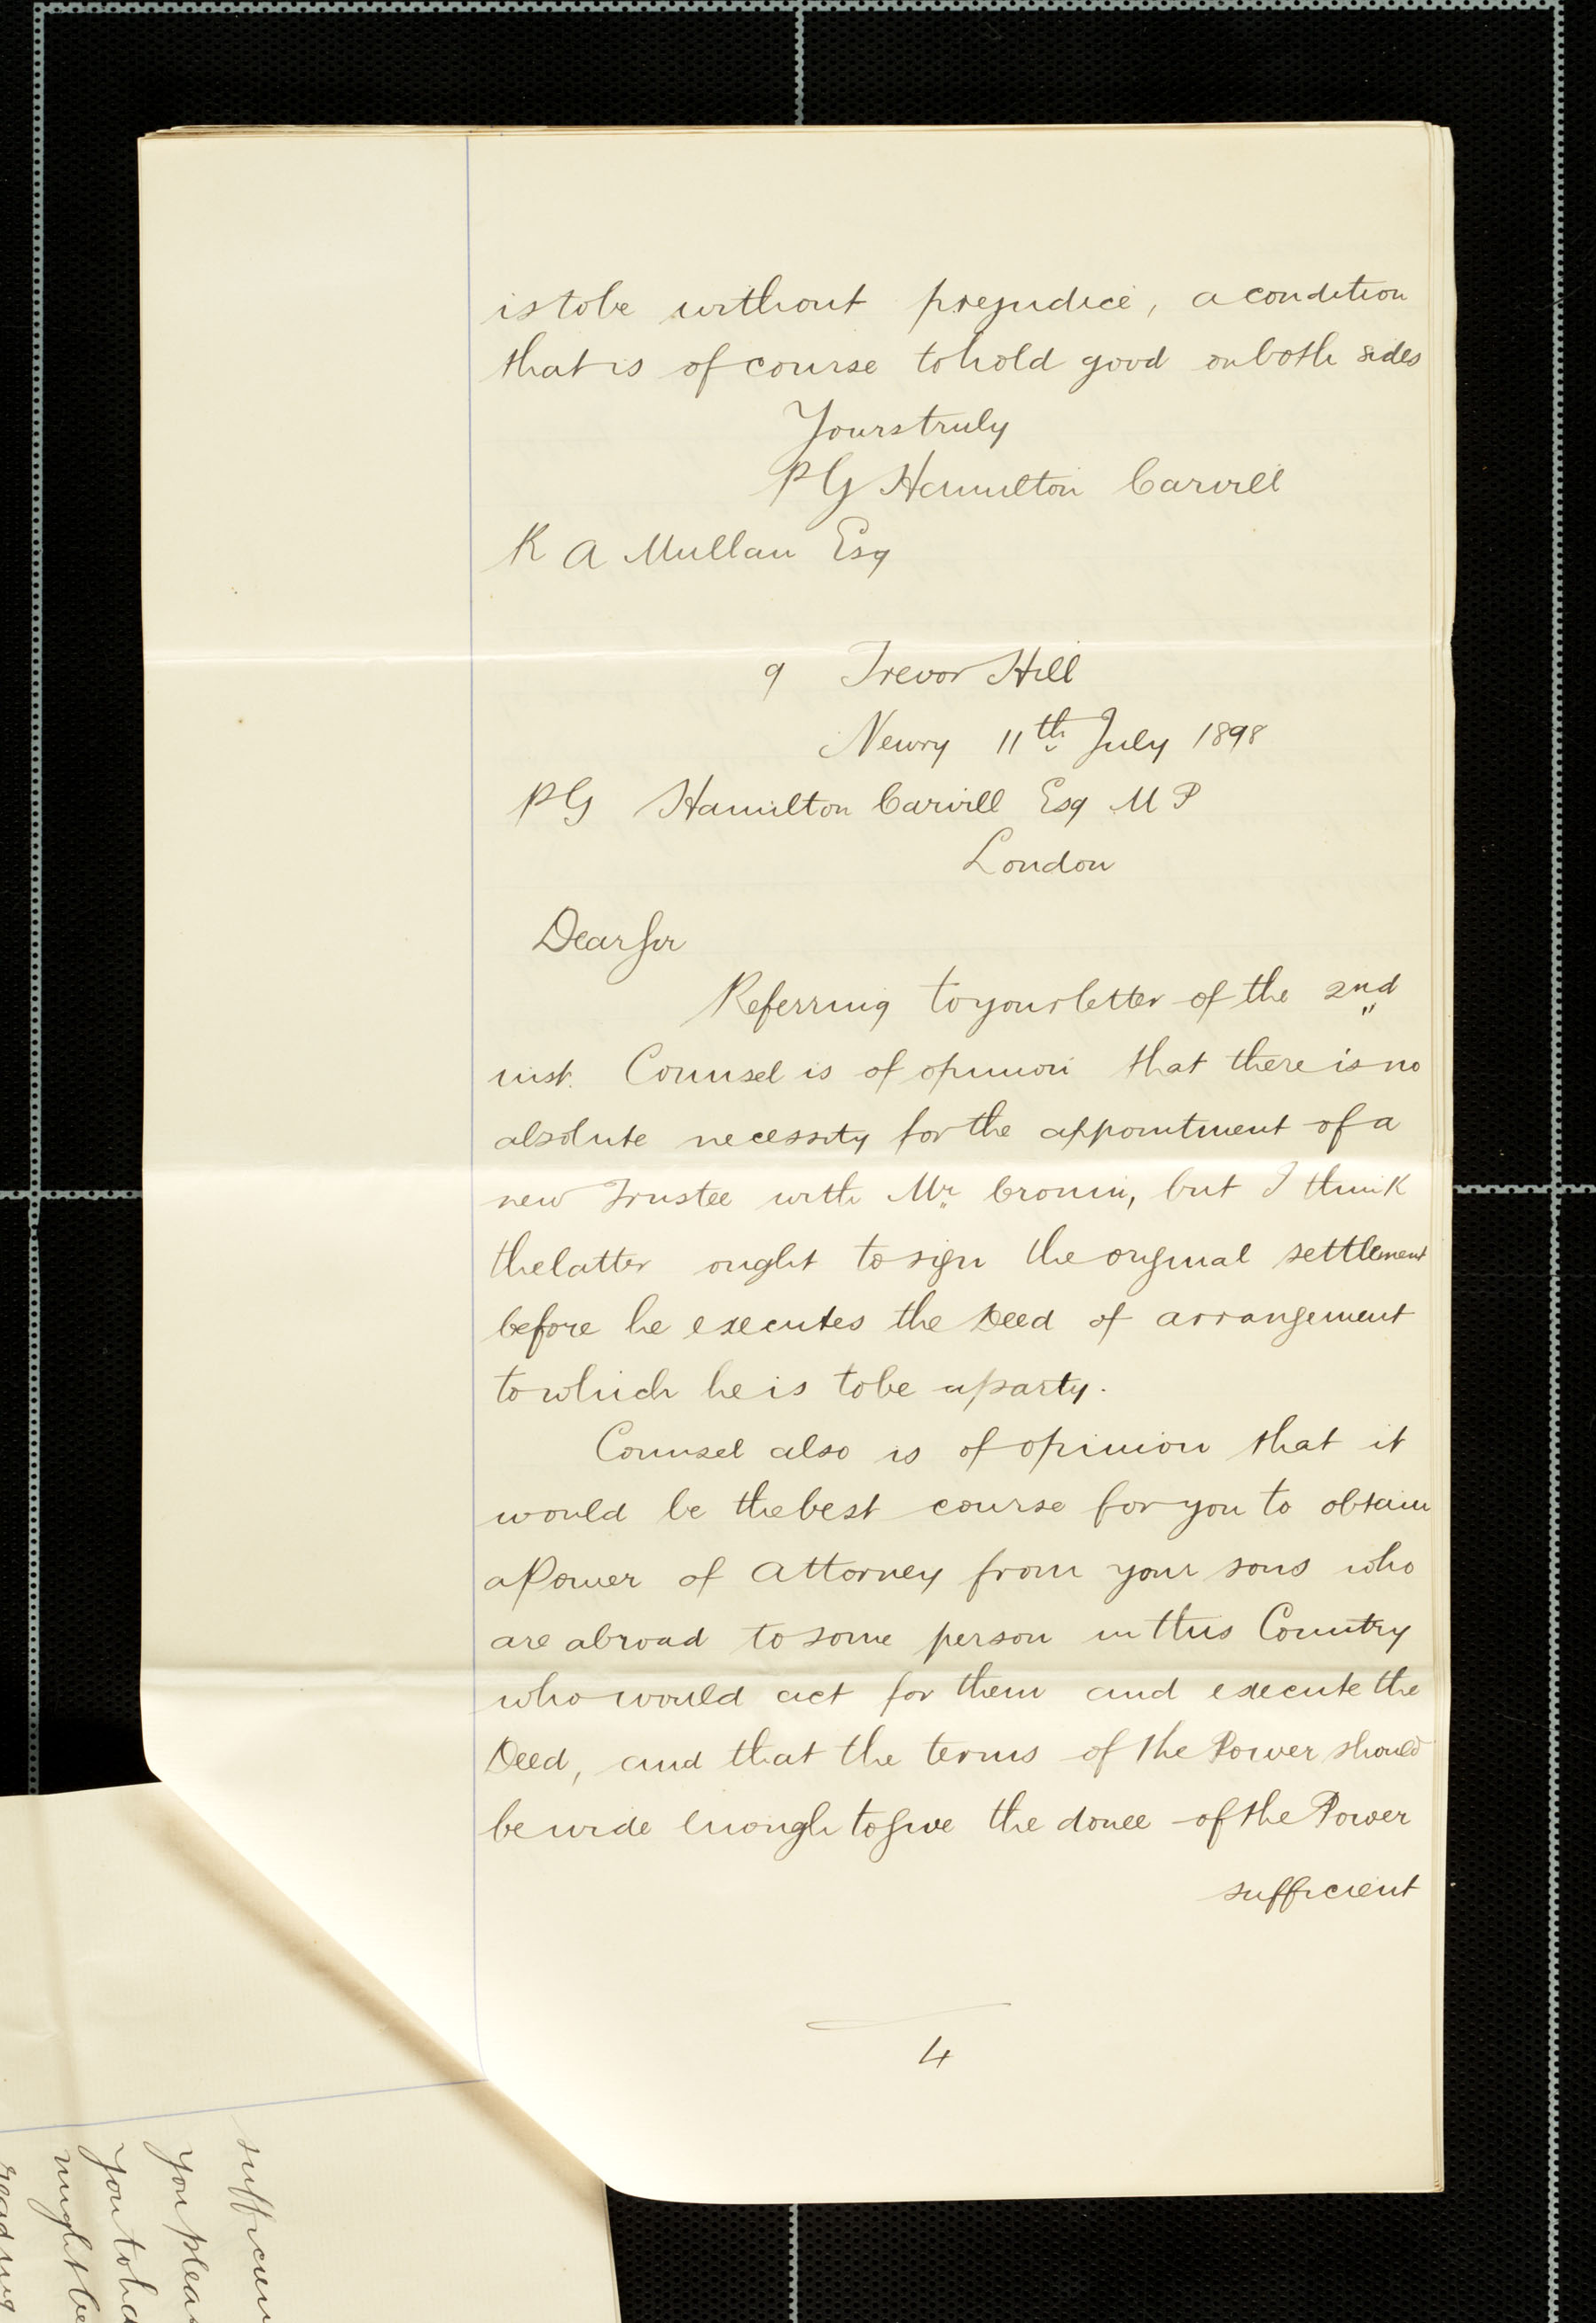 is to be without prejudice, a condition
that is of course to hold good on both sides
Yours truly
P G Hamilton Carvill
R A Mullan Esq
9 Trevor Hill
Newry 11th July 1898
P G Hamilton Carvill Esq M P
London
Dear Sir
Referring to your letter of the 2nd
inst. Counsel is of opinion that there is no
absolute necessity for the appointment of a
new Trustee with Mr Cronin, but I think
the latter ought to sign the original settlement
before he executes the Deed of arrangement
to which he is to be a party.
Counsel also is of opinion that it
would be the best course for you to obtain
a Power of Attorney from your sons who
are abroad to some person in this Country
who would act for them and execute the
Deed, and that the terms of the Power should
be wide enough to give the donee of the Power
sufficient
4
you plea
might be